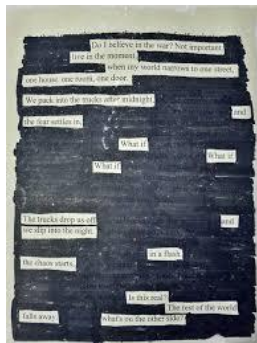 Do I believe in the war? Not important
here in the moment,
when my world narrows to one street,
one house, one room, one door.
We pack into the trucks after midnight,
and
the fear settles in.
What if
What if
What if
The trucks drop us off
and
we slip into the night.
in a flash
the chaos starts.
Is this real?
The rest of the world
falls away.
what's on the other side?